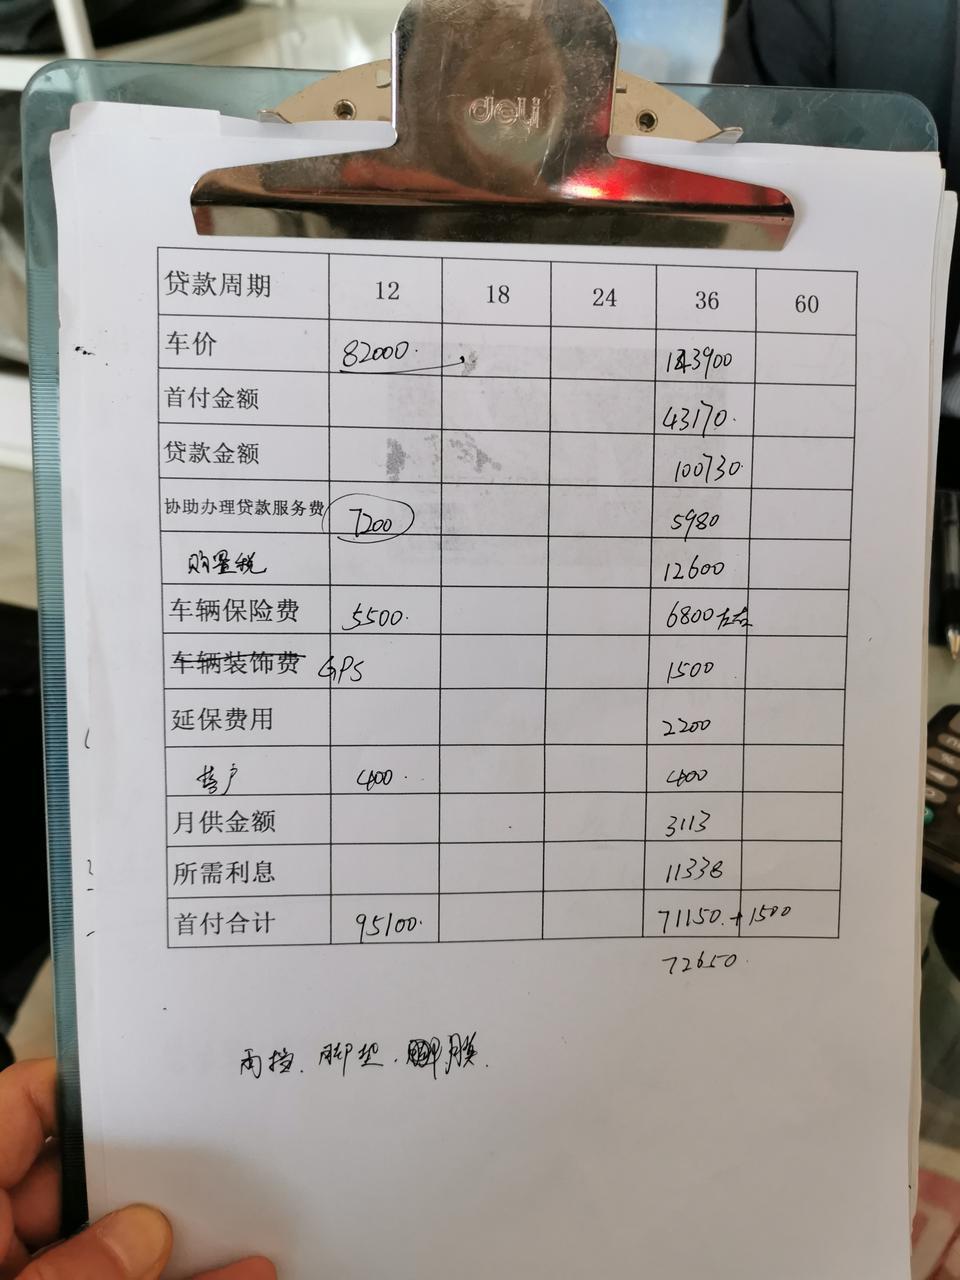 deli
贷款周期 12 18 24 36 60
车价 82000. 143900
首付金额 43170.
贷款金额 100730.
协助办理贷款服务费 7200 5980
购置税 12600
车辆保险费 5500. 6800左右
车辆装饰费 GPS 1500
延保费用 2200
400. 400
月供金额 3113
所需利息 11338
首付合计 95100. 71150.+1500
72650.
雨挡、脚垫、膜.